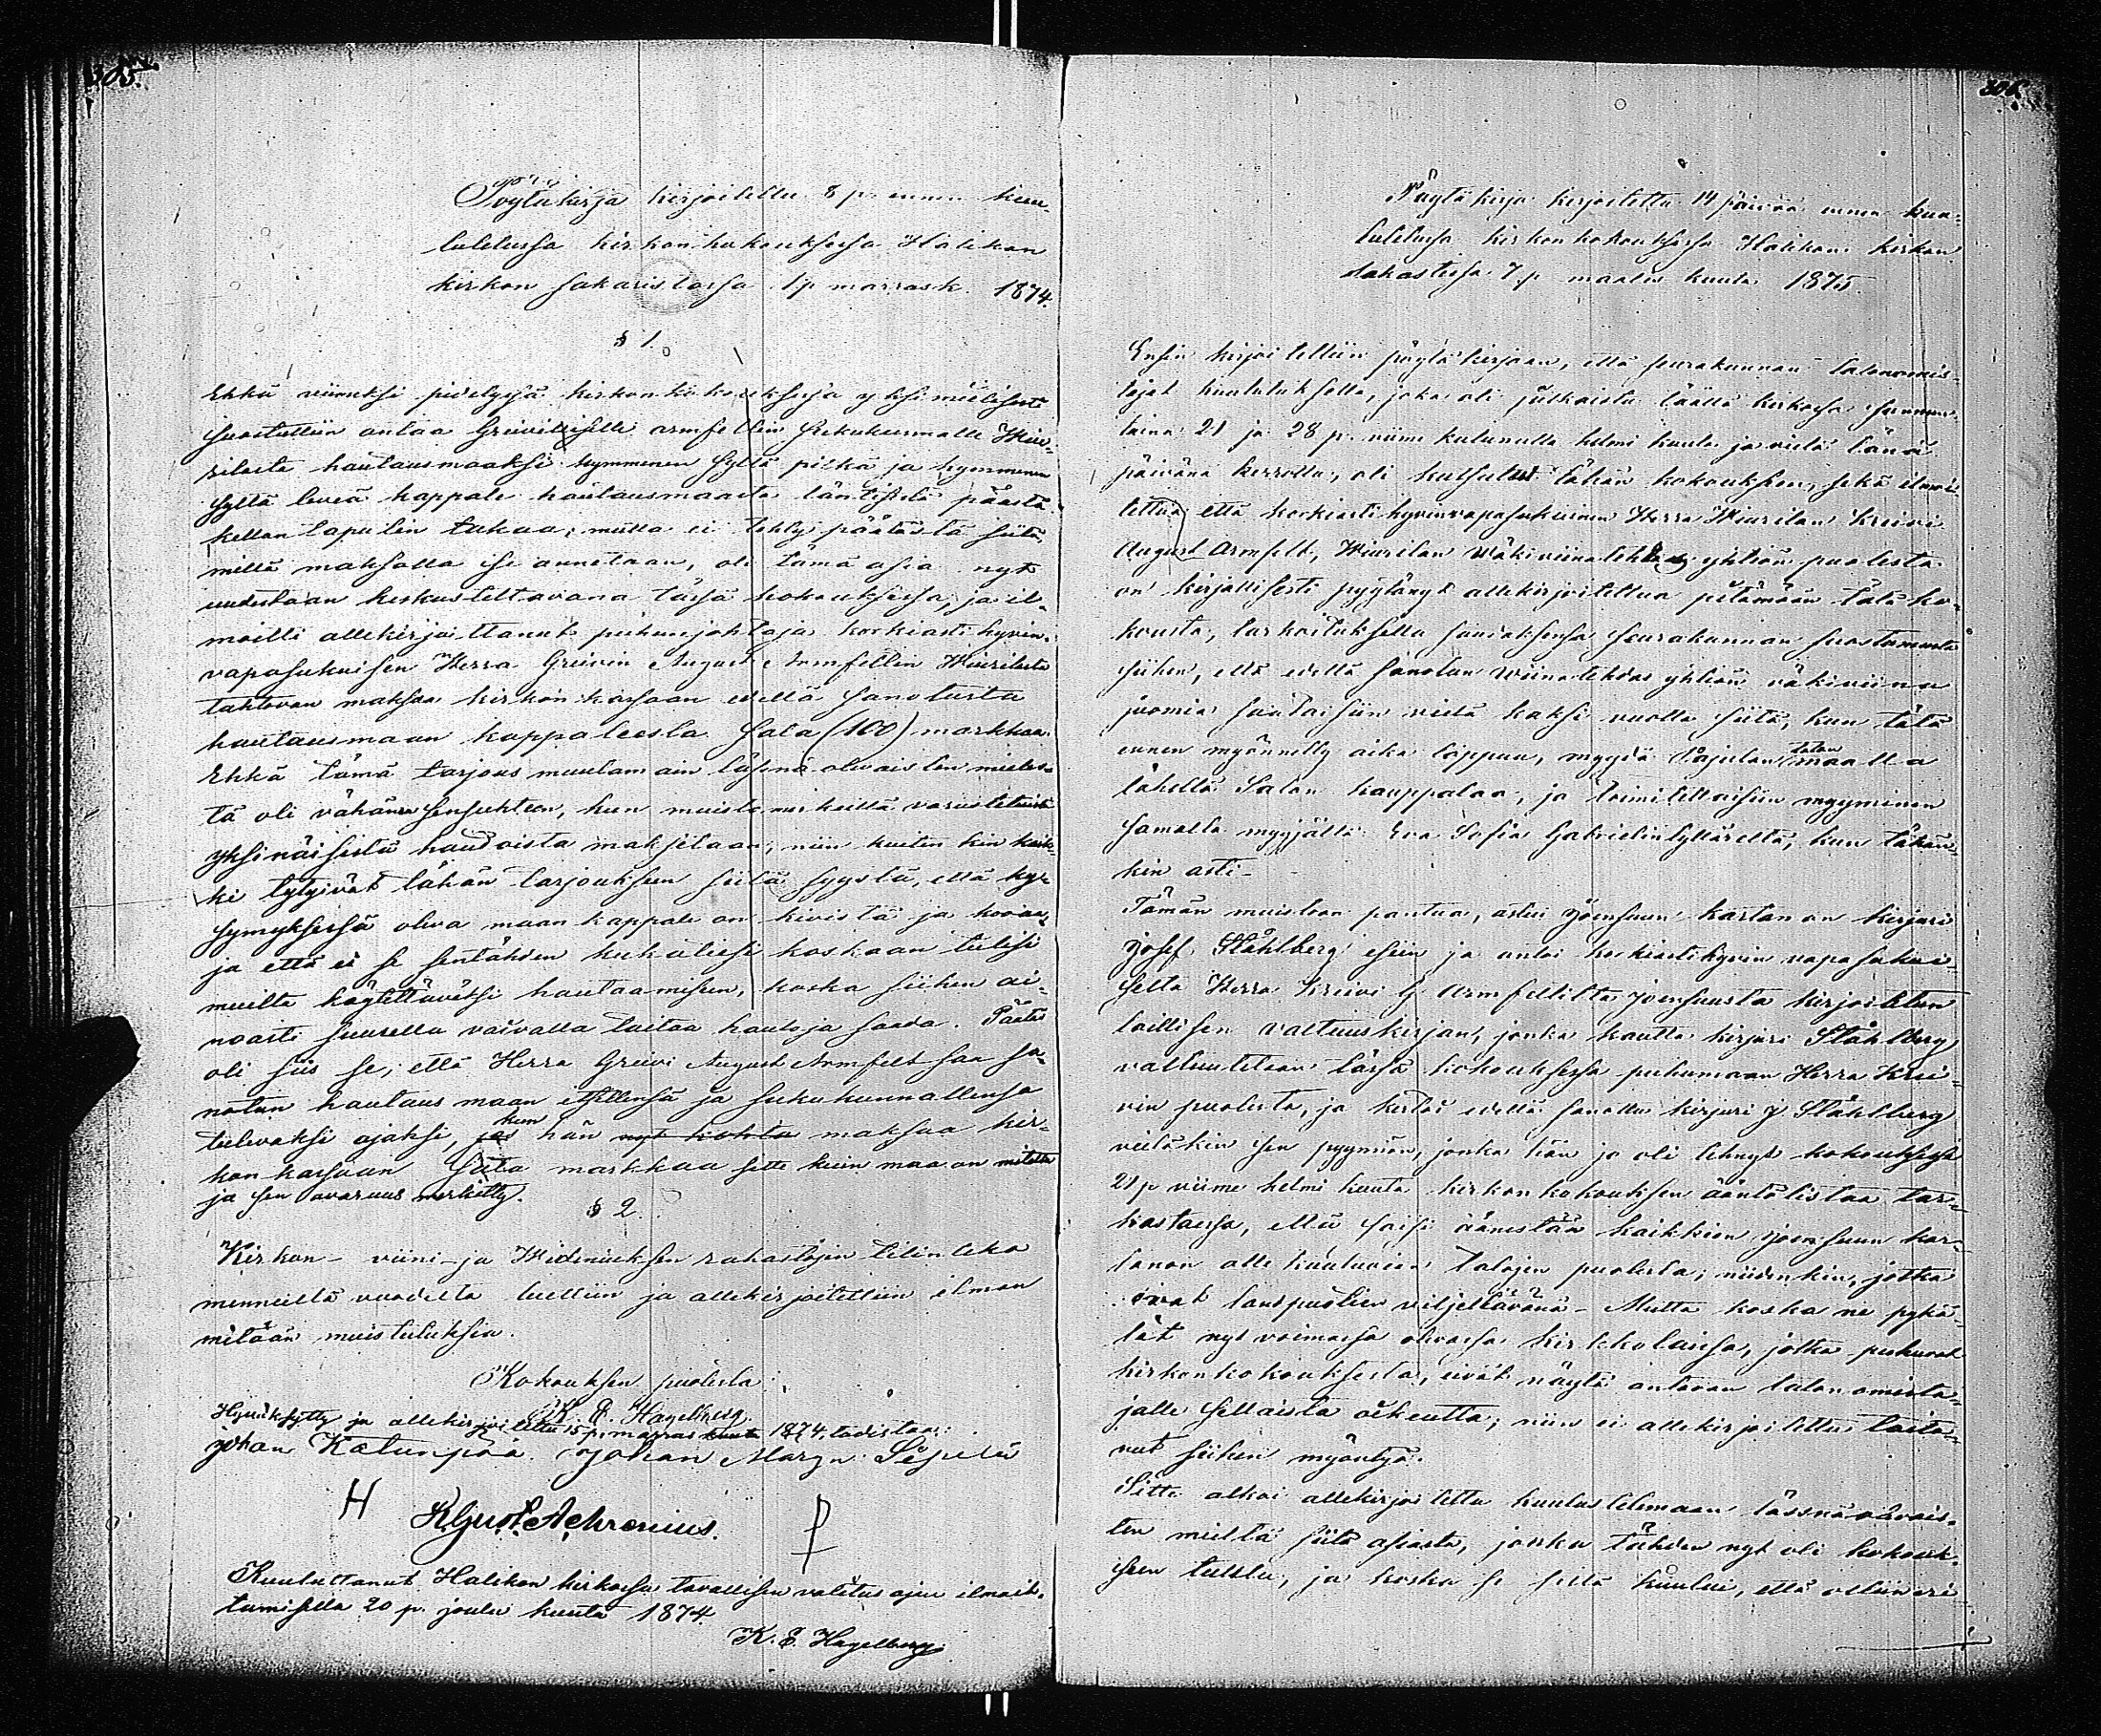 305.
Pöytäkirja kirjoitettu 8 p. ennen kuu-
lutetussa kirkonkokouksessa Halikon
kirkon sakaristossa 1 p marrask. 1874.
§ 1.
Ehkä viimeksi pidetyssä kirkonkokouksessa yksimielisesti
suostuttiin antaa Greivilliselle Armfeltin sukukunnalle Wiu-
rilasta hautausmaaksi kymmenen syltä pitkä ja kymmenen
syltä leveä kappale hautausmaasta läntisestä päästä
kellon tapulin takaa, mutta ei tehty päätöstä siitä,
millä maksolla se annetaan, oli tämä asia nyt
uudestaan keskusteltavana tässä kokouksessa, ja il-
moitti allekirjoittanut puheenjohtaja korkiasti hyvin-
vapasukuisen Herra Greivin August Armfeltin Wiurilasta
tahtovan maksaa kirkon kassaan edellä sanotusta
hautausmaan kappaleesta Sata (100) markkaa.
Ehkä tämä tarjous muutamain läsnä olevaisten mieles-
tä oli vähänen sensuhteen, kun muista merkeillä varustetuista
yksinäisistä haudoista maksetaan, niin kuiten kin kaik-
ki tytyivät tähän tarjoukseen siitä syystä, että ky-
symyksessä oleva maan kappale on kivistä ja kovaa,
ja että ei se sentähden kukaties koskaan tulisi
muilta käytettäväksi hautaamiseen, koska siihen ai-
noasti suurella vaivalla taitaa hautoja saada. Päätös
oli siis se, että Herra Greivi August Armfelt saa sa-
notun hautaus maan itsellensä ja sukukunnallensa
tulevaksi ajaksi, jos kun hän nyt kohta maksaa kir-
kon kassaan Sata markkaa sitte kuin maa on mitattu
ja sen avaruus merkitty.
§ 2.
Kirkon- viini- ja Wideniuksen rahastojen tilinteko
menneeltä vuodelta luettiin ja allekirjoitettiin ilman
mitään muistutuksia.
Kokouksen puolesta:
K. E. Hagelberg.
Hyväksytty ja allekirjoitettu 15 p. marras kuuta 1874, todistaa:
Johan Katunpää Johan Sipilä
H
Achrenius.
Kuuluttanut Halikon kirkossa tavallisen valitus ajan ilmoit-
tamisella 20 p. joulu kuuta 1874.
K. E. Hagelberg.
306.
Pöytäkirja kirjoitettu 14 päivää ennen kuu-
lutetussa kirkonkokouksessa Halikon kirkon
sakastissa 7 p maalis kuuta 1875.
Ensin kirjoitettiin pöytäkirjaan, että seurakunnan talonomis-
tajat kuulutuksella, joka oli julkaistu täällä kirkossa sunnun-
taina 21 ja 28 p. viime kulunutta helmi kuuta ja vielä tänä
päivänä kerrottu, oli kutsutut tähän kokoukseen, sekä ilmoi-
tettua, että korkiasti hyvinvapasukuinen Herra Wiurilan Kreivi
August Armfelt, Wiurilan Wäkiviinatehdas yhtiön puolesta
on kirjallisesti pyytänyt allekirjoitettua pitämään tätä ko-
kousta, tarkoituksella saadaksensa seurakunnan suostumusta
siihen, että edellä sanotun Wiinatehdas yhtiön väkiviina
juomia saataisiin vielä kaksi vuotta siitä, kun tätä
ennen myönnetty aika loppuu, myydä talon maalla
lähellä Salon kauppalaa, ja toimitettaisiin myyminen
samalla myyjällä Eva Sofia Gabrielintyttäreltä, kun tähän-
kin asti.
Tämän muistoon pantua, astui Joensuun kartanon kirjuri
Josef Ståhlberg esiin ja antoi korkiastihyvin vapasukui-
selta Herra Kreivi G Armfeltilta Joensuusta kirjoitetun
laillisen valtuuskirjan, jonka kautta kirjuri Ståhlberg
valtuutetaan tässä kokouksessa puhumaan Herra Krei-
vin puolesta, ja kertoi edellä sanottu kirjuri J Ståhlberg
vieläkin sen pyynnön, jonka hän jo oli tehnyt kokouksessa
21 p viime helmi kuuta kirkonkokouksen ääntölistaa tar-
kastaessa, että saisi äänestää kaikkien Joensuun kar-
tanon alle kuuluvien talojen puolesta, niidenkin, jotka
ovat lantpuolien viljeltävänä. Mutta koska ne pykä-
lät nyt voimassa olevassa kirkkolaissa, jotka puhuvat
kirkonkokouksesta, eivät näytä antavan talon omista-
jalle sellaista oikeutta, niin ei allekirjoitettu taita-
nut siihen myöntyä.
Sitte alkoi allekirjoitettu kuulustelemaan lässnäolevais-
ten mieltä siitä asiasta, jonka tähden nyt oli kokouk-
seen tultu, ja koska se siltä kuului, että oltiin eri